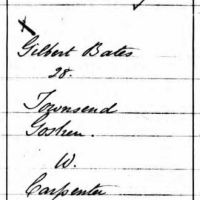 x
Gilbert Bates
28.
Townsend
Goshen.
W.
Carpenter